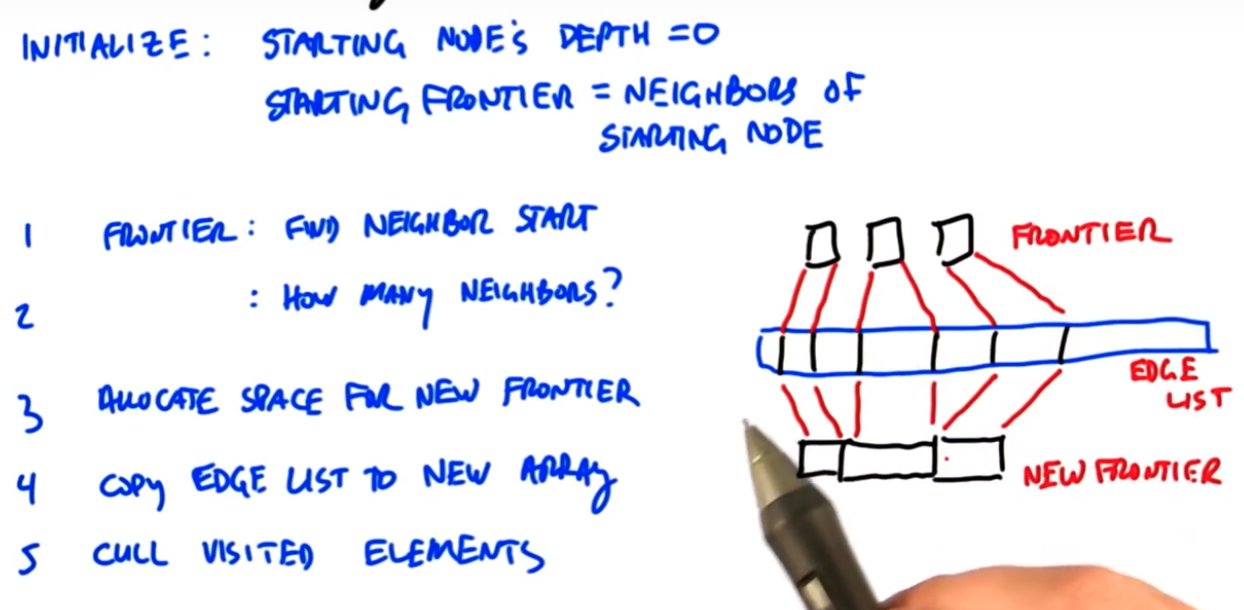 INITIALIZE: STARTING NODE'S DEPTH = 0
STARTING FRONTIER = NEIGHBORS OF
STARTING NODE
1 FRONTIER: FIND NEIGHBOR START
2 : HOW MANY NEIGHBORS?
3 ALLOCATE SPACE FOR NEW FRONTIER
4 COPY EDGE LIST TO NEW ARRAY
5 CULL VISITED ELEMENTS
FRONTIER
EDGE
LIST
NEW FRONTIER